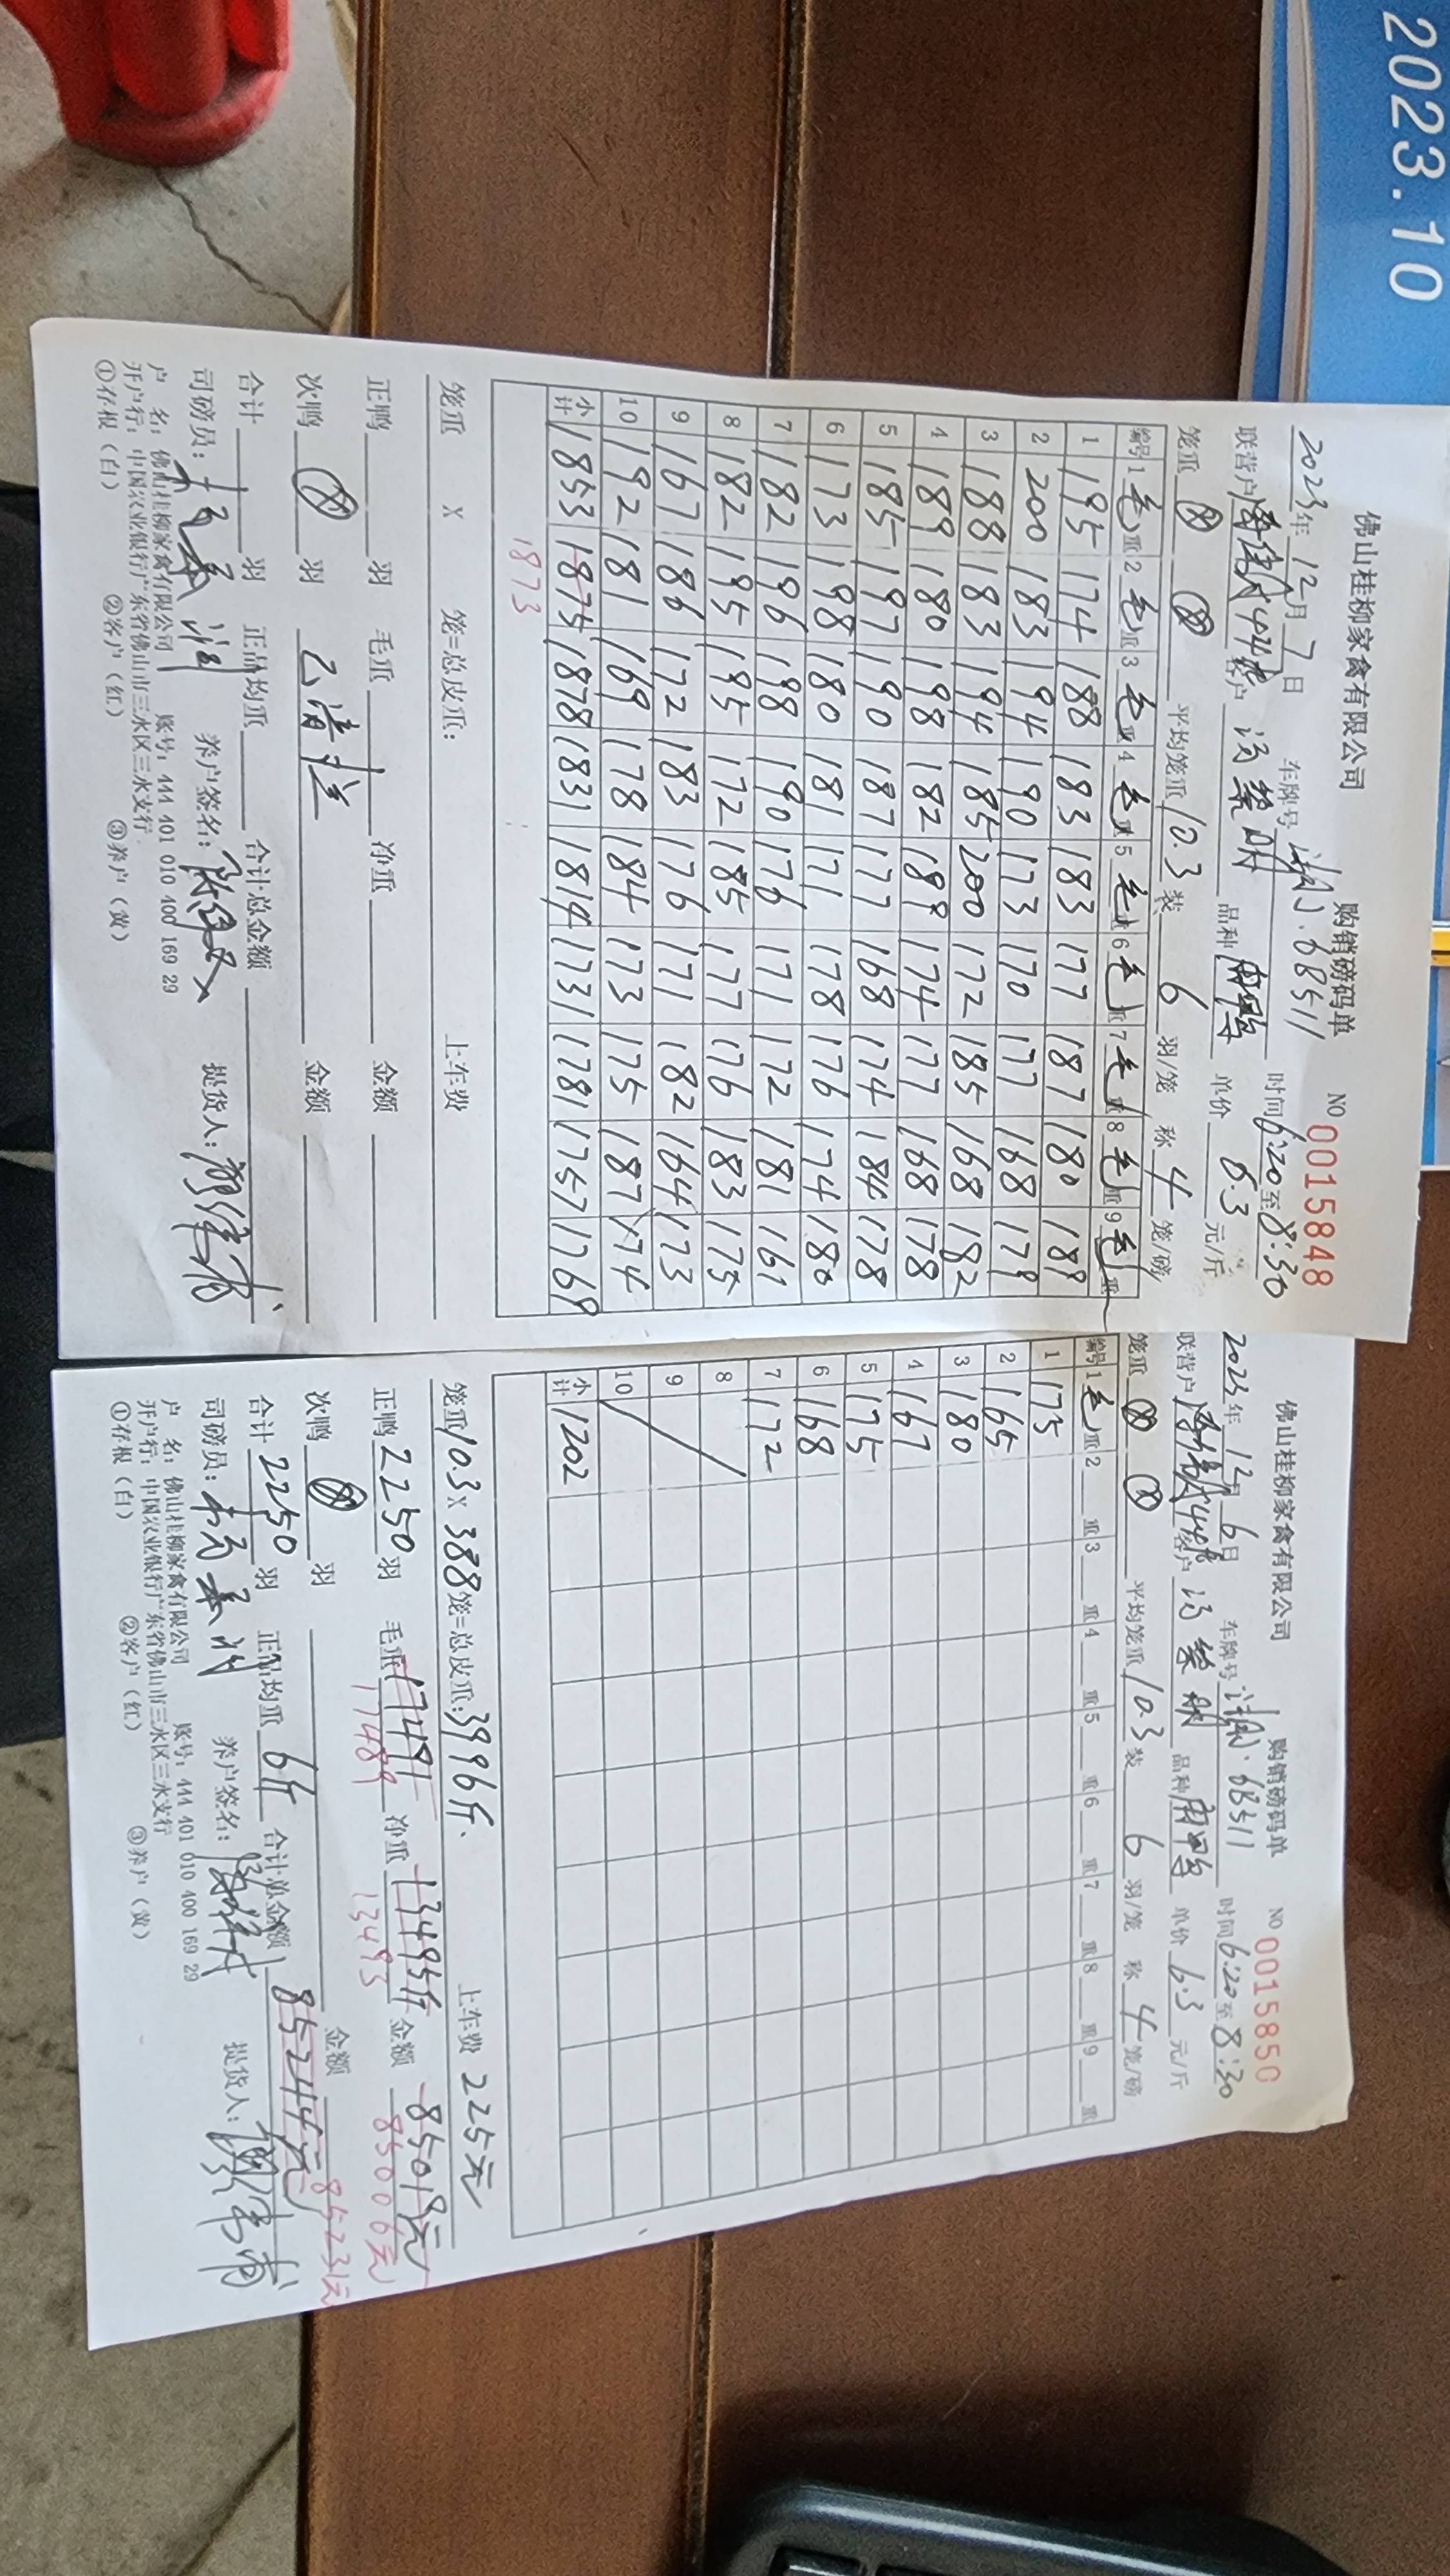 2023.10
佛山桂柳家禽有限公司 购销磅码单 NO 0015848
2023年12月7日 车牌号 ·68511 时间6:20至8:30
联营户 客户 汤 品种 单价 6.3 元/斤
笼重 平均笼重 10.3 装 6 羽/笼 称 4 笼/磅
编号 1毛重 2毛重 3毛重 4毛重 5毛重 6毛重 7毛重 8毛重 9毛重
1 195 174 188 183 183 177 187 180 189
2 200 183 194 190 173 170 177 168 179
3 188 183 194 185 200 172 185 168 182
4 189 180 198 182 189 174 177 168 178
5 185 197 190 187 177 168 174 184 178
6 173 198 180 181 171 178 176 174 180
7 182 196 198 190 176 171 172 181 161
8 182 195 195 172 185 177 176 183 175
9 167 186 172 183 176 171 182 164 173
10 192 181 169 178 184 173 175 187 174
小计 1853 1875 1878 1831 1814 1731 1781 1757 1769
1873
笼重 X 笼=总皮重: 上车费
正鸭 羽 毛重 净重 金额
次鸭 羽 金额
合计 羽 正品均重 合计总金额
司磅员: 养户签名: 提货人:
户 名: 佛山桂柳家禽有限公司 账号: 444 401 010 400 169 29
开户行: 中国农业银行广东省佛山市三水区三水支行
①存根(白) ②客户(红) ③养户(黄)
佛山桂柳家禽有限公司 购销磅码单 NO 0015850
2023年12月6日 车牌号 ·68511 时间6:20至8:30
联营户 客户 汤 品种 单价 6.3 元/斤
笼重 平均笼重 10.3 装 6 羽/笼 称 4 笼/磅
编号 1毛重 2 重 3 重 4 重 5 重 6 重 7 重 8 重 9 重
1 175
2 165
3 180
4 167
5 175
6 168
7 172
8
9
10
小计 1202
笼重10.3X 388笼=总皮重:3996斤. 上车费 225元
正鸭 2250 羽 毛重 17491 净重 13495斤 金额 85018元
17489 13493 85006元
次鸭 羽 金额
合计 2250 羽 正品均重 6斤 合计总金额 85244元 85231元
司磅员: 养户签名: 提货人:
户 名: 佛山桂柳家禽有限公司 账号: 444 401 010 400 169 29
开户行: 中国农业银行广东省佛山市三水区三水支行
①存根(白) ②客户(红) ③养户(黄)